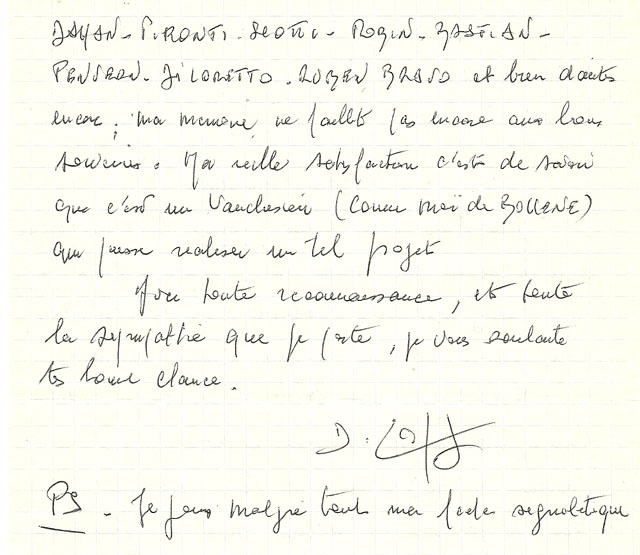 DAYAN - PIRONTI - SCOTTI - ROBIN - BASTIAN -
PENSERON - DI LORETTO - RUBEN BRAVO et bien d'autres
encore ; ma memoire, ne faillit pas encore aux bons
souvenirs. Ma réelle satisfaction c'est de savoir
que c'est un Vauclusien (comme moi de BOLLENE)
qui puisse realiser un tel projet
Avec toute reconnaissance, et toute
la sympathie que je porte, je vous souhaite
très bonne chance.
D.
PS - Je joins malgré tout ma fiche signalétique